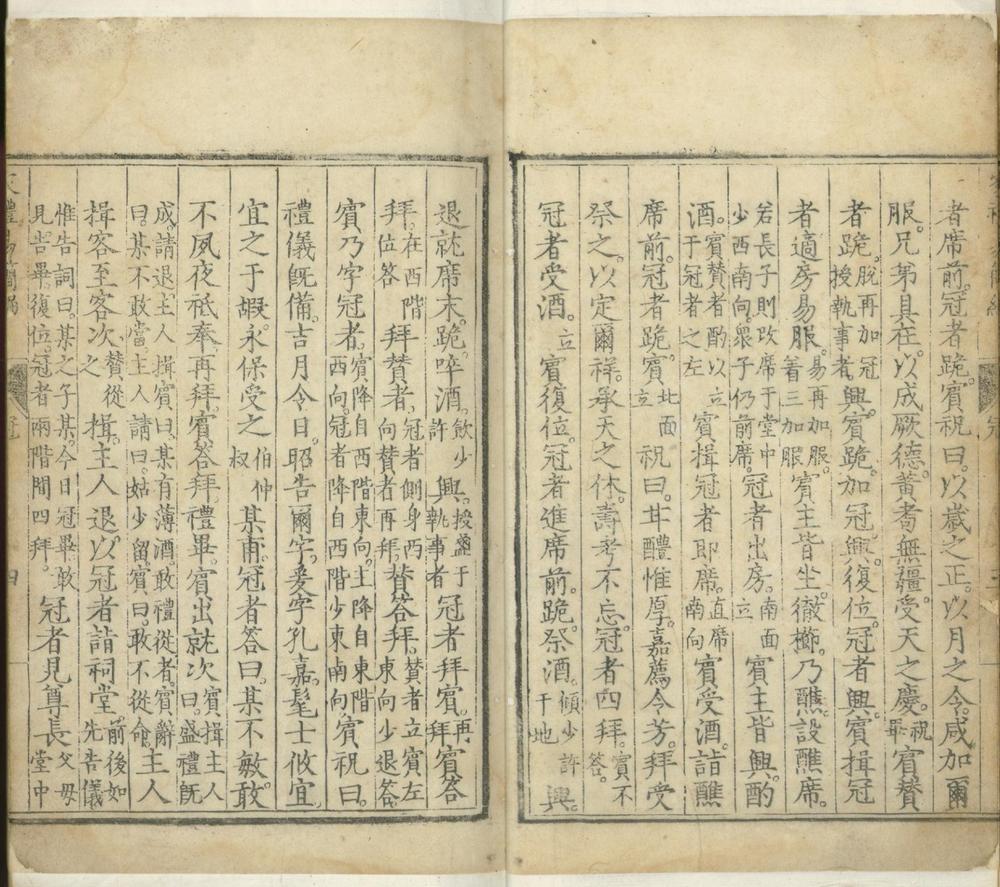 者席前。冠者跪。賓祝曰。以歲之正。以月之令。咸加爾
服。兄弟具在。以成厥德。黃耈無疆。受天之慶。祝畢 賓贊
者跪。脫再加冠授執事者。興。賓跪。加冠。興。復位。冠者興。賓揖冠
者適房易服。易再加服。着三加服 賓主皆坐。徹櫛。乃醮。設醮席。
若長子則改席于堂中少西南向。衆子仍前席。冠者出房。南面立 賓主皆興。酌
酒。賓贊者酌以酒于冠者之左 立 賓揖冠者即席。直席南向 賓受酒。詣醮
席前。冠者跪。賓北面立 祝曰。甘醴惟厚。嘉薦令芳。拜受
祭之。以定爾祥。承天之休。壽考不忘。冠者四拜。賓不答。
冠者受酒。立 賓復位。冠者進席前。跪。祭酒。傾少許于地 興。
退就席末。跪。啐酒。飲少許 興。授盞于執事者 冠者拜賓。再拜 賓答
拜。在西階拜位答 拜贊者。冠者側身西向贊者再拜。贊答拜。贊者立賓左東向少退答。
賓乃字冠者。賓降自西階東向。主降自東階西向。冠者降自西階少東南向 賓祝曰。
禮儀旣備。吉月令日。昭告爾字。爰字孔嘉。髦士攸宜。
宜之于嘏。永保受之 伯仲叔 某甫。冠者答曰。某不敏。敢
不夙夜祗奉。再拜。賓答拜。禮畢。賓出就次。賓揖主人曰盛禮旣
成。請退。主人揖賓曰。某有薄酒。敢禮從者。賓辭曰。某不敢當。主人請曰。姑少留。賓曰。敢不從命。主人
揖客至客次。贊從之 揖。主人退。以冠者詣祠堂 前後如先告儀
惟告詞曰。某之子某。今日冠畢。敢見。告畢。復位。冠者兩階間四拜。冠者見尊長 父母堂中